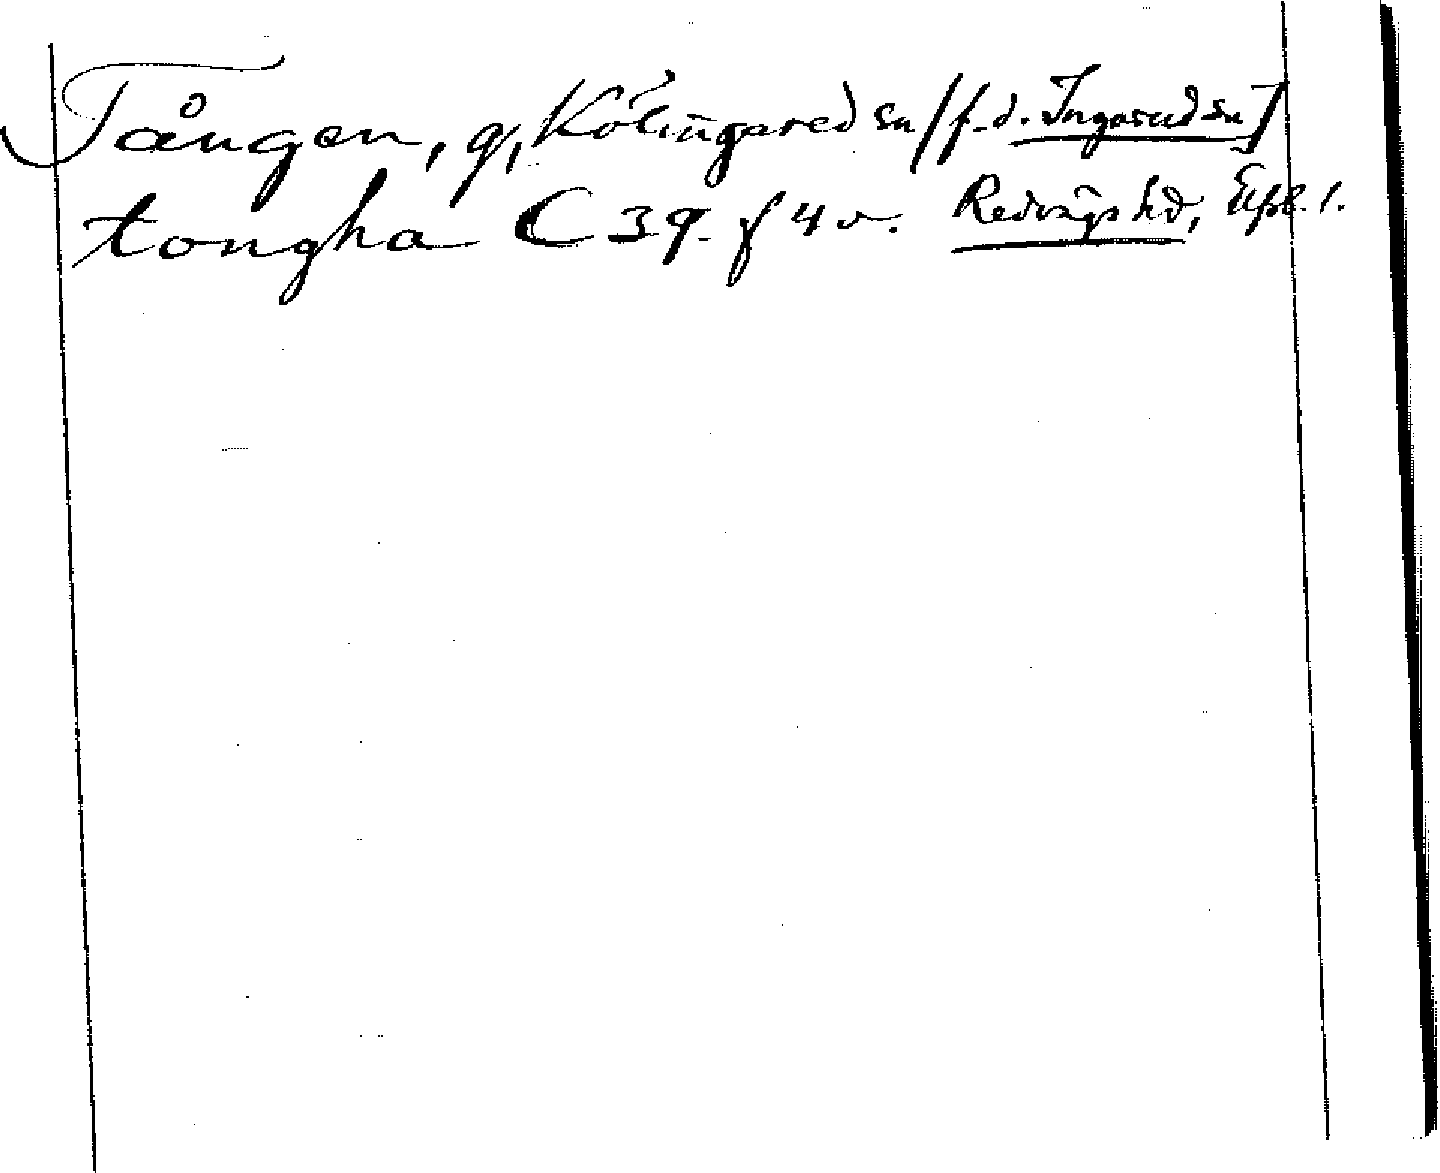 Tången, g, Kölingared sn [f.d. Ingared sn]
tongha C 39. f 4 v. Redvägs hd, Älfsb. l.